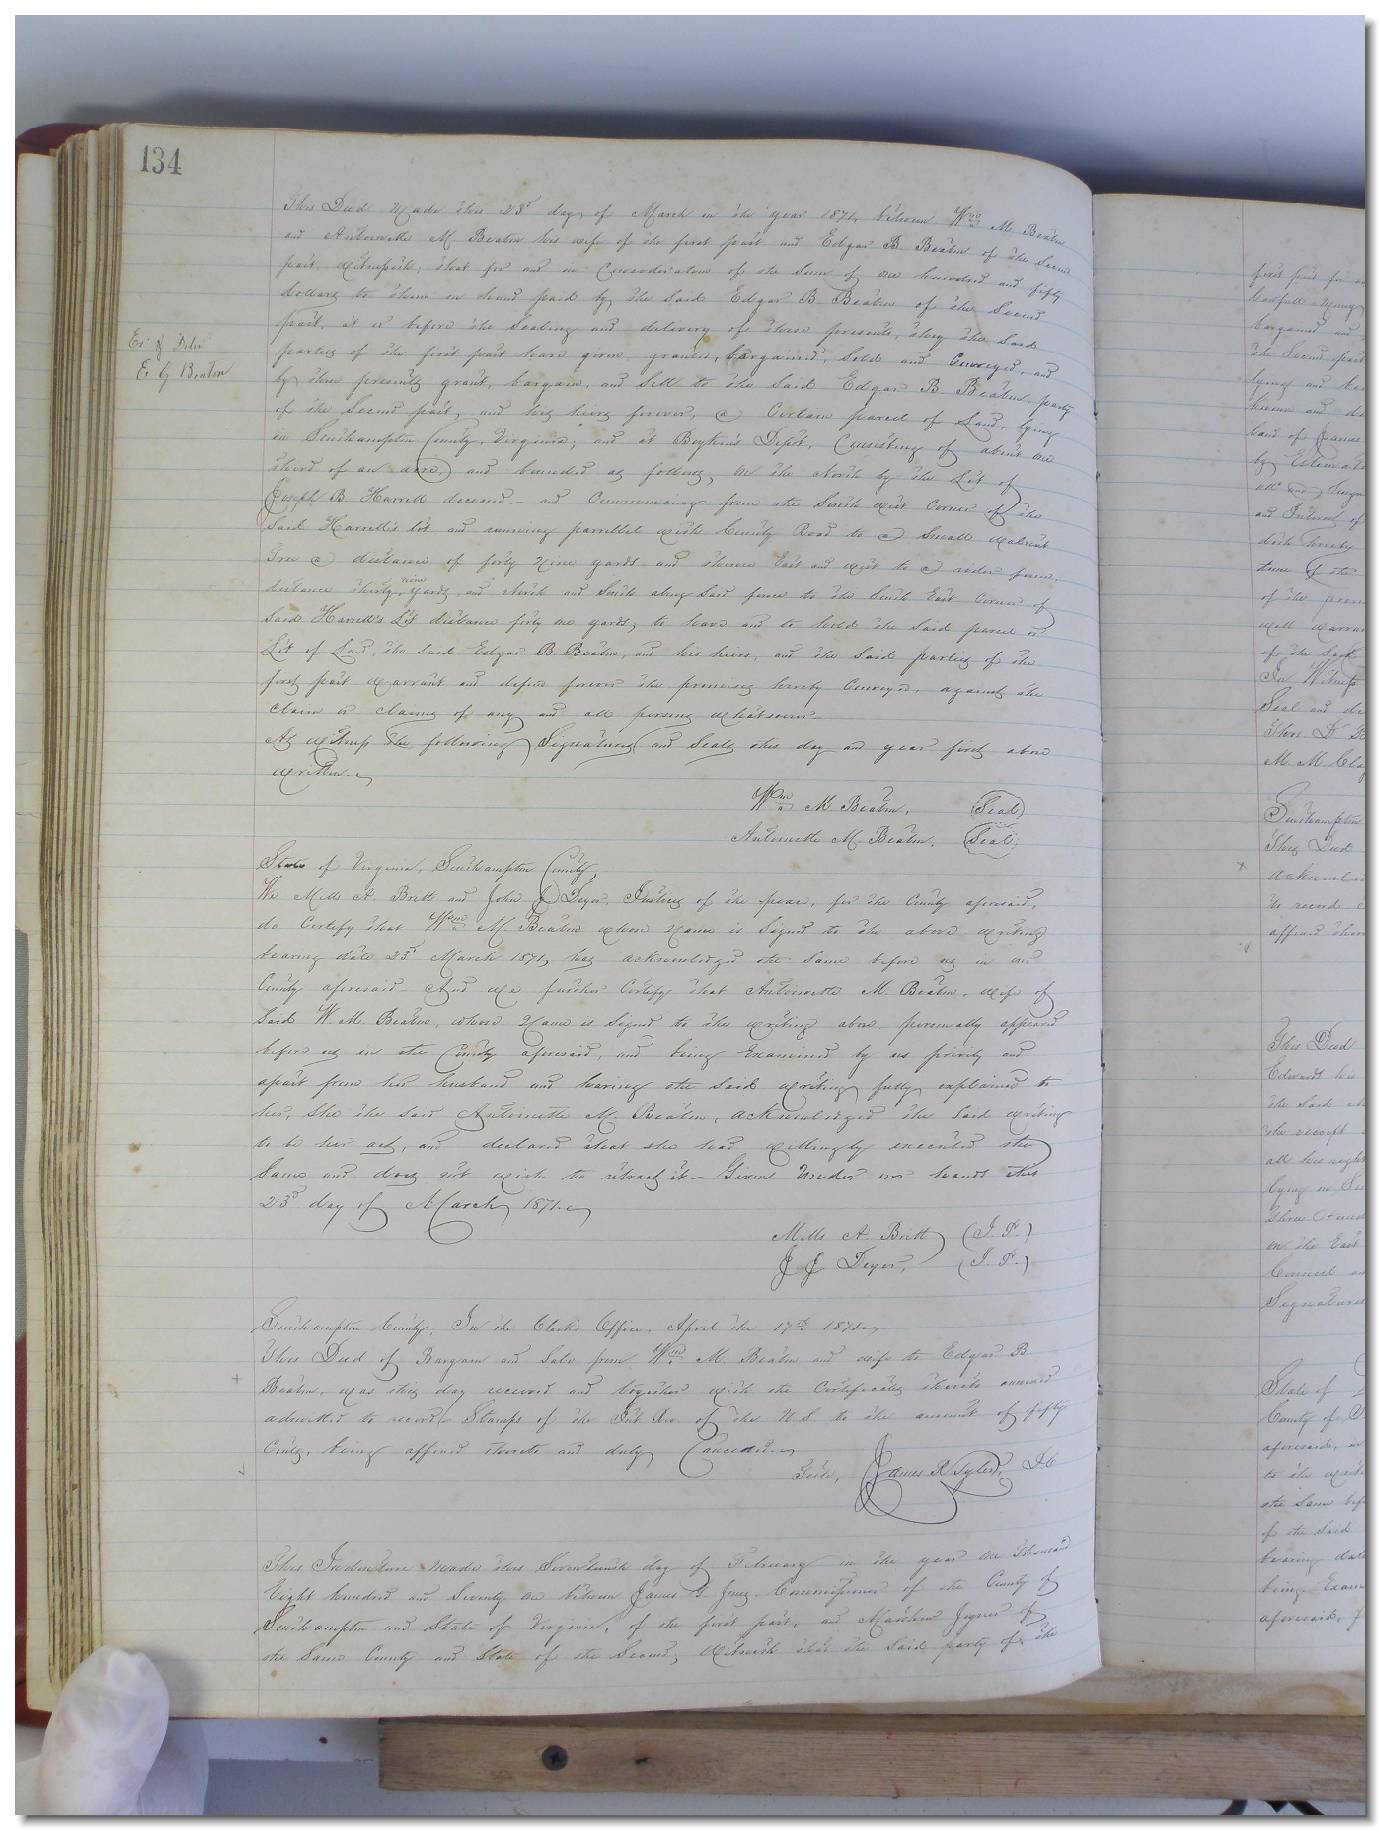 134
This Deed Made this 23d day of March in the year 1871, between Wm M Beaton
and Antoinette M. Beaton his wife of the first part and Edgar B Beaton of the Second
part, Witnesseth, that for and in Consideration of the Sum of one hundred and fifty
dollars to them in hand paid by the Said Edgar B Beaton of the Second
part, at or before the Sealing and delivery of these presents, they the Said
parties of the first part have given granted, bargained, Sold and Conveyed, and
by these presents grant, bargain, and Sell to the Said Edgar B Beaton party
of the Second part, and his heirs forever, a Certain parcel of Land, lying
in Southampton County, Virginia, and at Boykins Depot, Consisting of about one
third of an acre, and bounded as follows, On the North by the Lot of
Joseph B. Harrell deceased - and Commencing from the South west Corner of the
Said Harrell's lot and running parrellel with County Road to a Small walnut
Tree a distance of forty Nine yards and thence East and West to a cedar fence,
distance thirty nine yards, and North and South along Said fence to the South East Corner of
Said Harrell's Lot distance forty one yards, to have and to hold the Said parcel or
Lot of Land, the Said Edgar B Beaton, and his heirs, and the Said parties of the
first part warrant and defend forever the premises hereby Conveyed, against the
claim or claims of any and all persons whatsoever
As witness the following Signatures and Seals this day and year first above
written.
Wm M Beaton. (Seal)
Antoinette M. Beaton. (Seal)
Ex d & Delvd
E. B Beaton
State of Virginia, Southampton County,
We Mills A. Britt and John J Deyer, Justices of the peace, for the County aforesaid,
do Certify that Wm M. Beaton whose Name is Signed to the above writing
bearing date 23d March 1871, has acknowledged the Same before us in our
County aforesaid - And we further Certify that Antoinette M. Beaton, wife of
Said W. M. Beaton, whose Name is Signed to the writing above, personally appeared
before us in the County aforesaid, and being Examined by us privily and
apart from her husband and having the Said writing fully explained to
her, She the Said Antoinette M. Beaton, acknowledged the Said writing
to be her act, and declared that she had willingly executed the
Same and does not wish to retract it - Given Under our hands this
23d day of March 1871.
Mills A. Britt (J. P.)
J J Deyer, (J. P.)
Southampton County, In the Clerks Office, April the 17th 1871.
This Deed of Bargain and Sale from Wm M. Beaton and wife to Edgar B
Beaton, was this day received and together with the Certificates thereto annexed
admitted to record, Stamps of the Int. Rev. of the U S. to the amount of fifty
Cents, being affixed thereto and duly Canceled.
Teste, James R Tyler, D.C
This Indenture made this Seventeenth day of February in the year one thousand
Eight hundred and Seventy one between James G. Jones Commissioner of the County of
Southampton and State of Virginia, of the first part, and Matthew Joyner of
the Same County and State of the Second, Witnesseth that the Said party of the
first part for
lawfull Money
bargained and
the Second part
lying and be
known and
land of James
by Estimate
and Interest of
doth hereby
of the
will warrant
of the Said
In Witness
Seal and
Thos.
M. M.
Southampton
This Deed
acknowled
to record
affixed there
This Deed
Edwards his
the Said
the receipt
all his right
lying in
three
on the East
Signatures
State of
County of
aforesaid,
to the
the Same bef
of the Said
bearing date
being Exam
aforesaid,